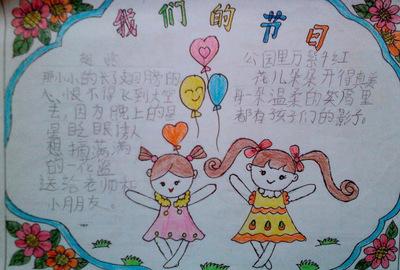 我们的节日
那小小的长翅膀的
心恨不得飞到天空
去,因为晚上的星
星眨眼请人
想摘满满
的一花篮
送给老师和
小月朋友。
公园里万紫千红
花儿朵朵开得真美
每一朵温柔的笑眉里
都有孩子们的影子。